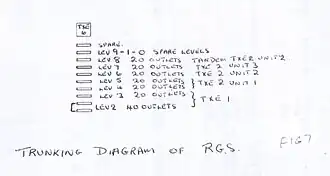 TXE
6
SPARE.
LEV 9-1-0 SPARE LEVELS
LEV 8 20 OUTLETS TANDEM TXE2 UNIT 2
LEV 7 20 OUTLETS TXE 2 UNIT 3
LEV 6 20 OUTLETS TXE 2 UNIT 2
LEV 5 20 OUTLETS } TXE 2 UNIT 1
LEV 4 20 OUTLETS
LEV 3 20 OUTLETS } TXE 1
LEV 2 40 OUTLETS
TRUNKING DIAGRAM OF RGS.
FIG 7